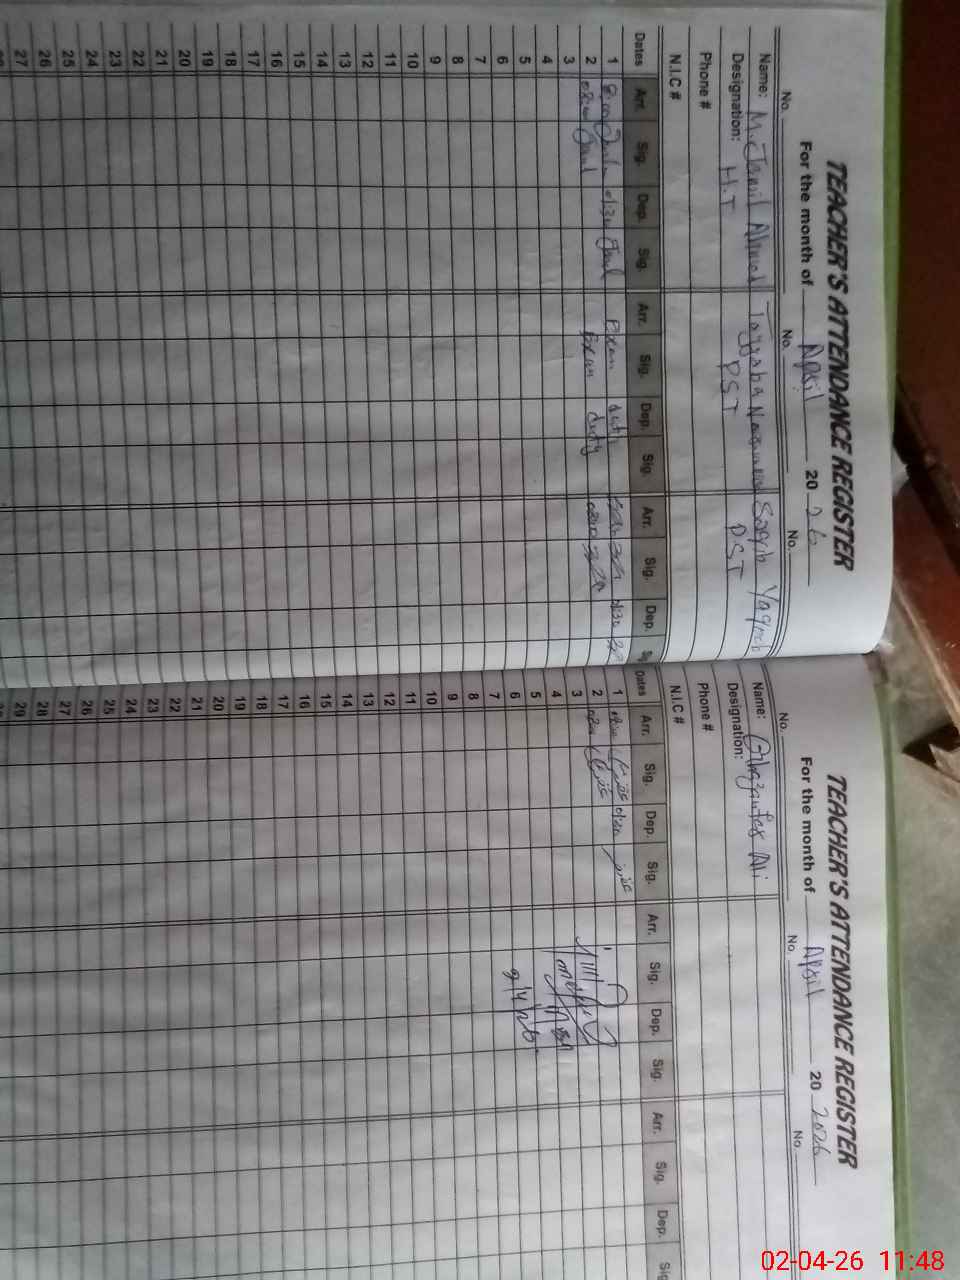 TEACHER'S ATTENDANCE REGISTER
For the month of April 20 26
No. No. No.
Name: M. Jamil Ahmed Tayyaba Saqib Yaqoob
Designation: H.T PST PST
Phone #
N.I.C #
Dates Arr. Sig. Dep. Sig. Arr. Sig. Dep. Sig. Arr. Sig. Dep. Sig
1 0130 Exam duty 0130
2 Exam duty
3
4
5
6
7
8
9
10
11
12
13
14
15
16
17
18
19
20
21
22
23
24
25
26
27
TEACHER'S ATTENDANCE REGISTER
For the month of April 20 2026
No. No. No.
Name: Ghazanfar Ali
Designation:
Phone #
N.I.C #
Dates Arr. Sig. Dep. Sig. Arr. Sig. Dep. Sig. Arr. Sig. Dep. Sig
1
2
3
4
5
6 2/4/26.
7
8
9
10
11
12
13
14
15
16
17
18
19
20
21
22
23
24
25
26
27
28
29
02-04-26 11:48